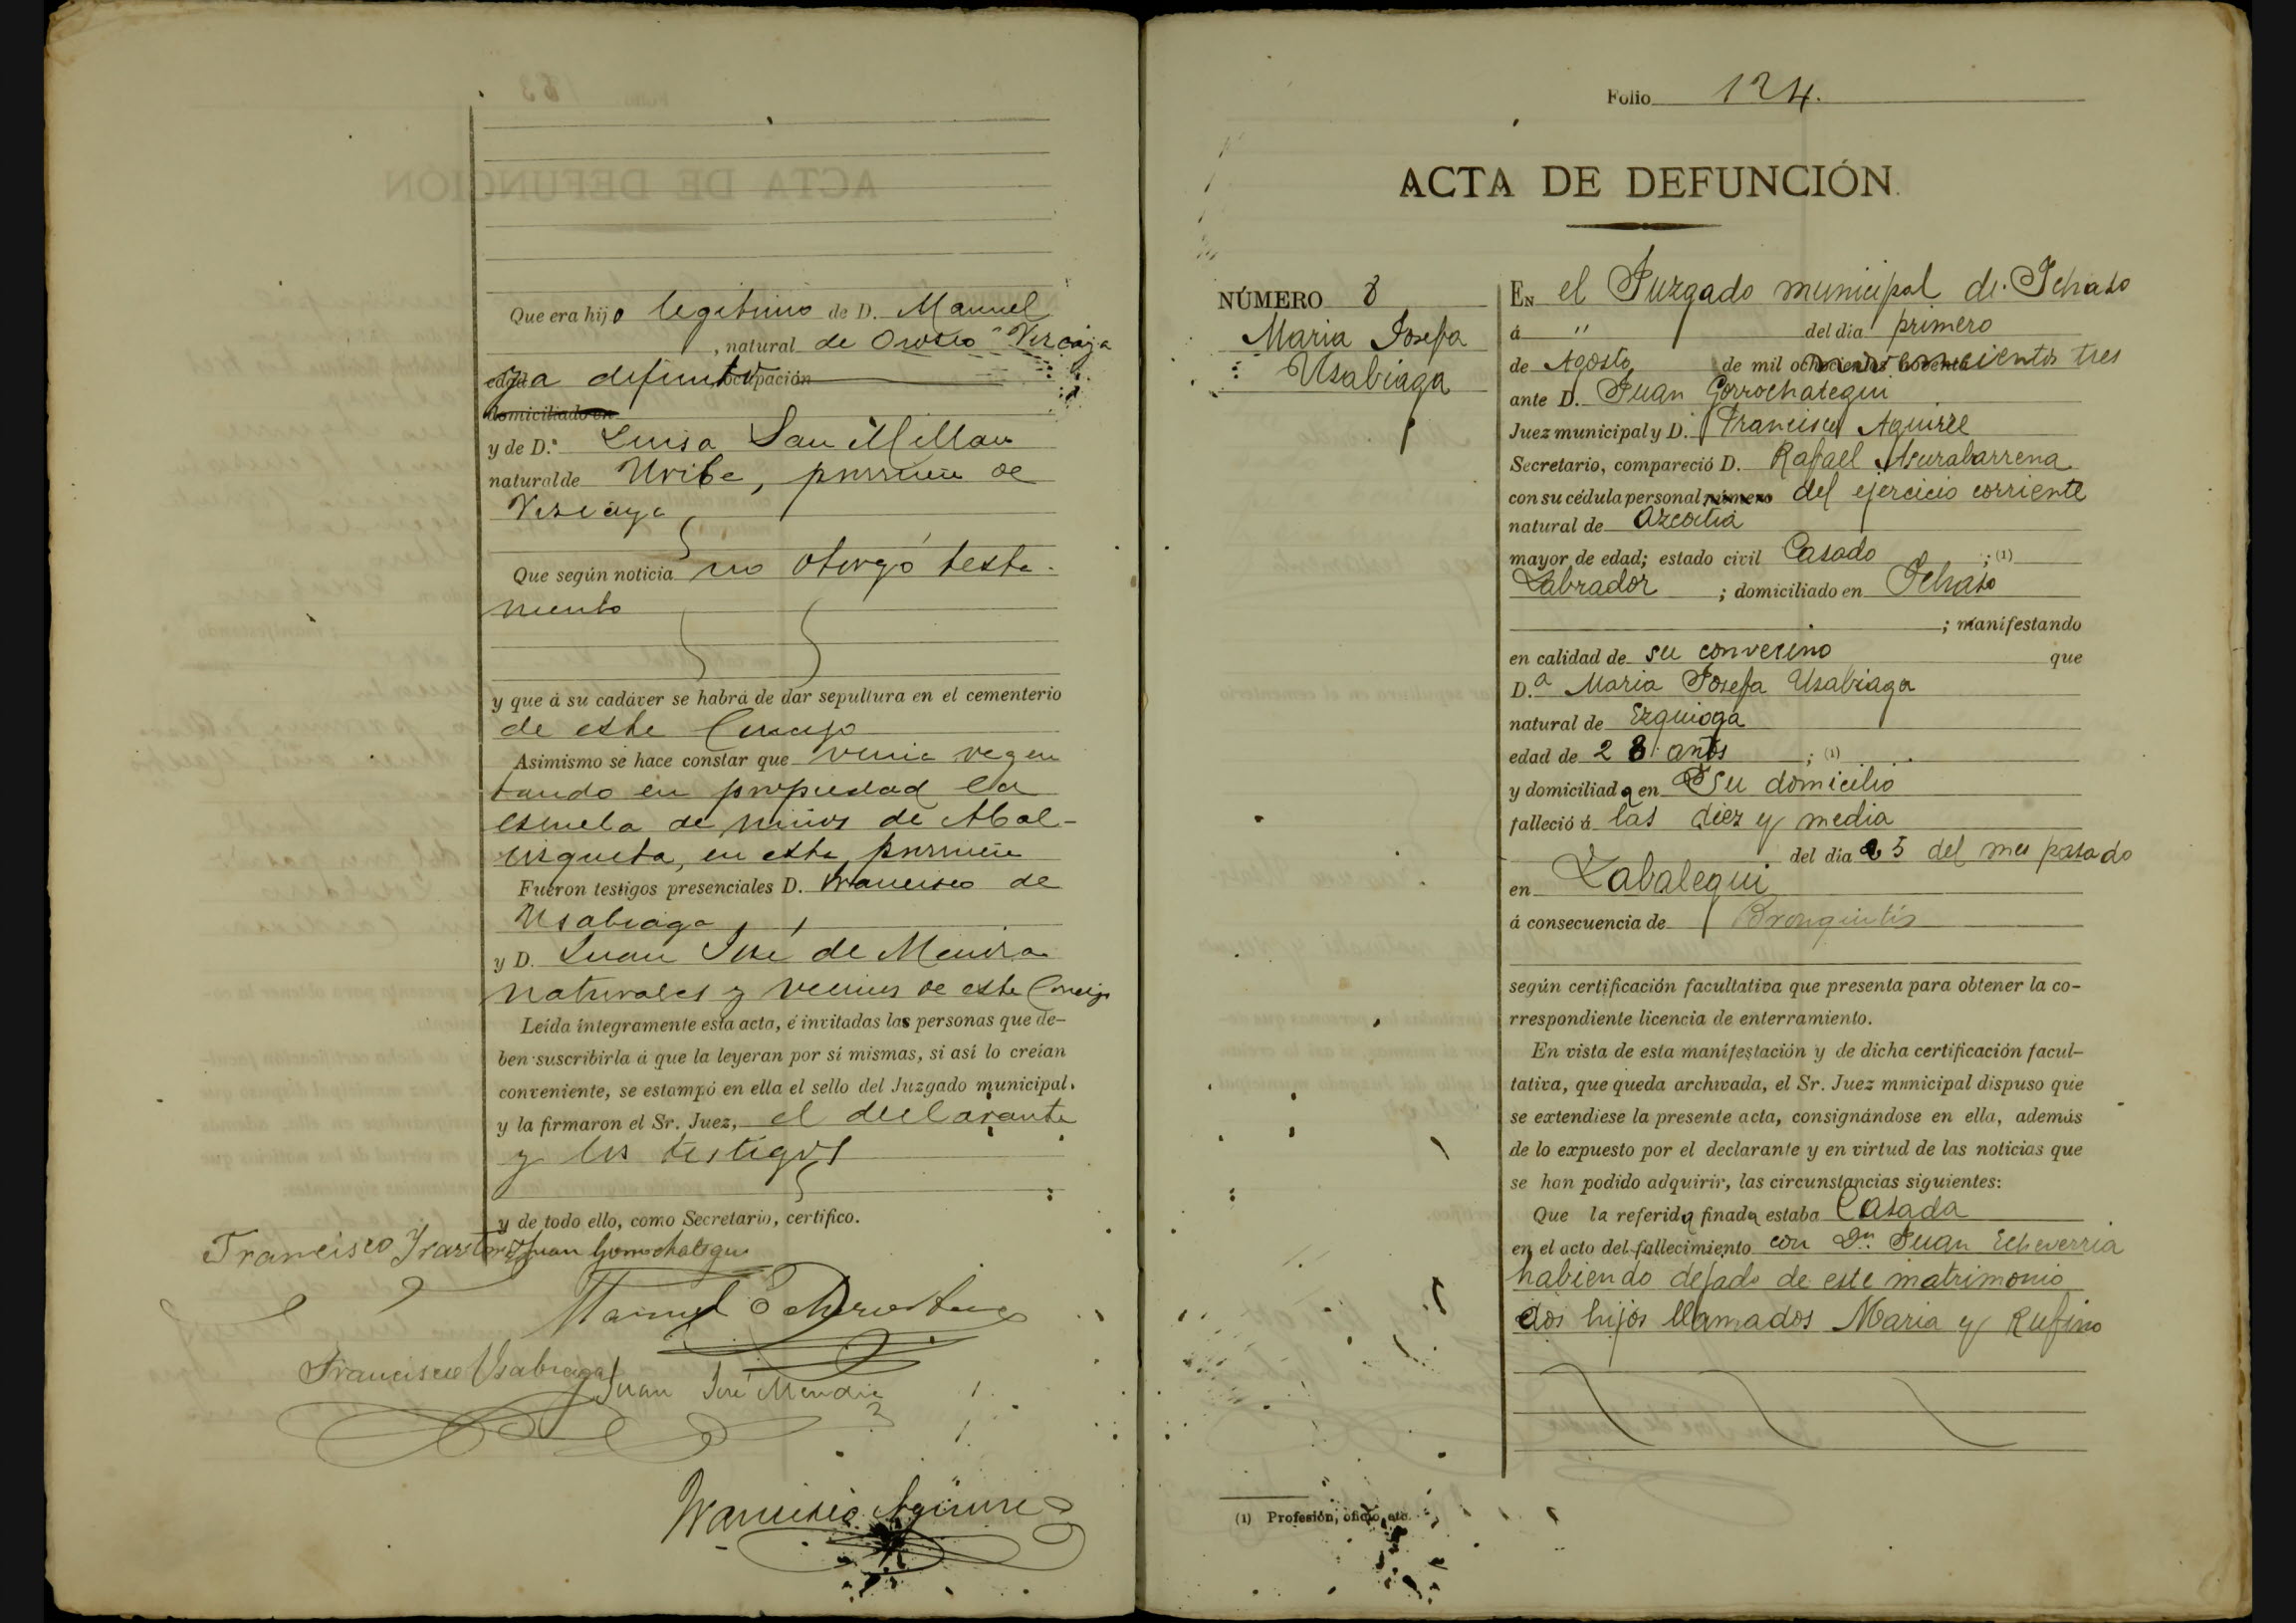 Que era hijo legitimo de D. Manuel
, natural de Orosco "Vizcaya
ya difunto edad ocupación
domiciliado en
y de D.ª Luisa San Millan
natural de Uribe, provincia de
Vizcaya
Que según noticia no otorgó testa-
mento
y que á su cadáver se habrá de dar sepultura en el cementerio
de este Concejo
Asimismo se hace constar que venia regen
tando en propiedad la
escuela de niños de
en esta provincia
Fueron testigos presenciales D. Francisco de
Usabiaga
y D. Juan José de Mendia
naturales y vecinos de este Concejo
Leída íntegramente esta acta, é invitadas las personas que de-
ben suscribirla á que la leyeran por sí mismas, si así lo creían
conveniente, se estampó en ella el sello del Juzgado municipal,
y la firmaron el Sr. Juez, el declarante
y los testigos
y de todo ello, como Secretario, certifico.
Francisco Juan Gorrochategui
Manuel
Francisco Usabiaga Juan José Mendia
Francisco Aguirre
Folio 124.
ACTA DE DEFUNCIÓN.
NÚMERO 8
Maria Josefa
Usabiaga
EN el Juzgado municipal de Ichaso
á " del dia primero
de Agosto de mil ochocientos noventa novecientos tres
ante D. Juan Gorrochategui
Juez municipal y D. Francisco Aguirre
Secretario, compareció D. Rafael Asurabarrena
con su cédula personal número del ejercicio corriente
natural de Azcoitia
mayor de edad; estado civil Casado ; (1)
Labrador ; domiciliado en Ichaso
; manifestando
en calidad de su convecino que
D.ª Maria Josefa Usabiaga
natural de Ezquioga
edad de 28 años ; (1)
y domiciliada en Su domicilio
falleció á las diez y media
del día 25 del mes pasado
en Zabalegui
á consecuencia de Bronquitis
según certificación facultativa que presenta para obtener la co-
rrespondiente licencia de enterramiento.
En vista de esta manifestación y de dicha certificación facul-
tativa, que queda archivada, el Sr. Juez municipal dispuso que
se extendiese la presente acta, consignándose en ella, además
de lo expuesto por el declarante y en virtud de las noticias que
se han podido adquirir, las circunstancias siguientes:
Que la referida finada estaba Casada
en el acto del fallecimiento con Dn. Juan Echeverria
habiendo dejado de este matrimonio
dos hijos llamados Maria y Rufino
(1) Profesión, oficio, etc.